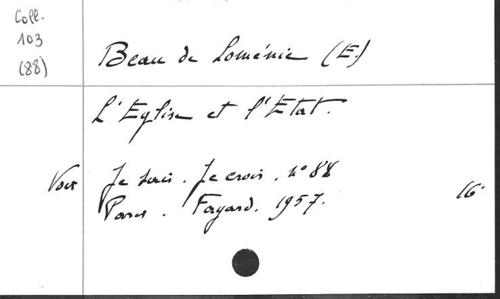 Coll.
103
(88)
Beau de Loménie (E.)
L'Eglise et l'Etat.
Voir Je sais. Je crois. n° 88
Paris. Fayard. 1957. 16°